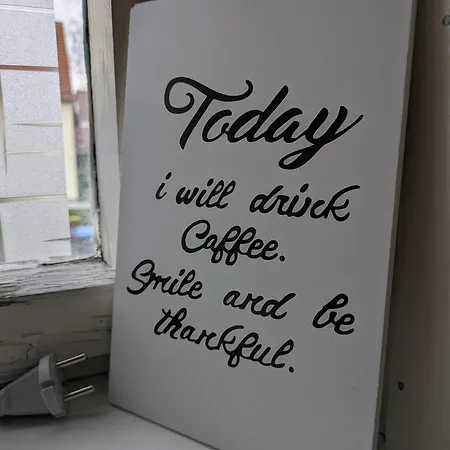 Today
i will drink
Caffee.
Smile and be
thankful.